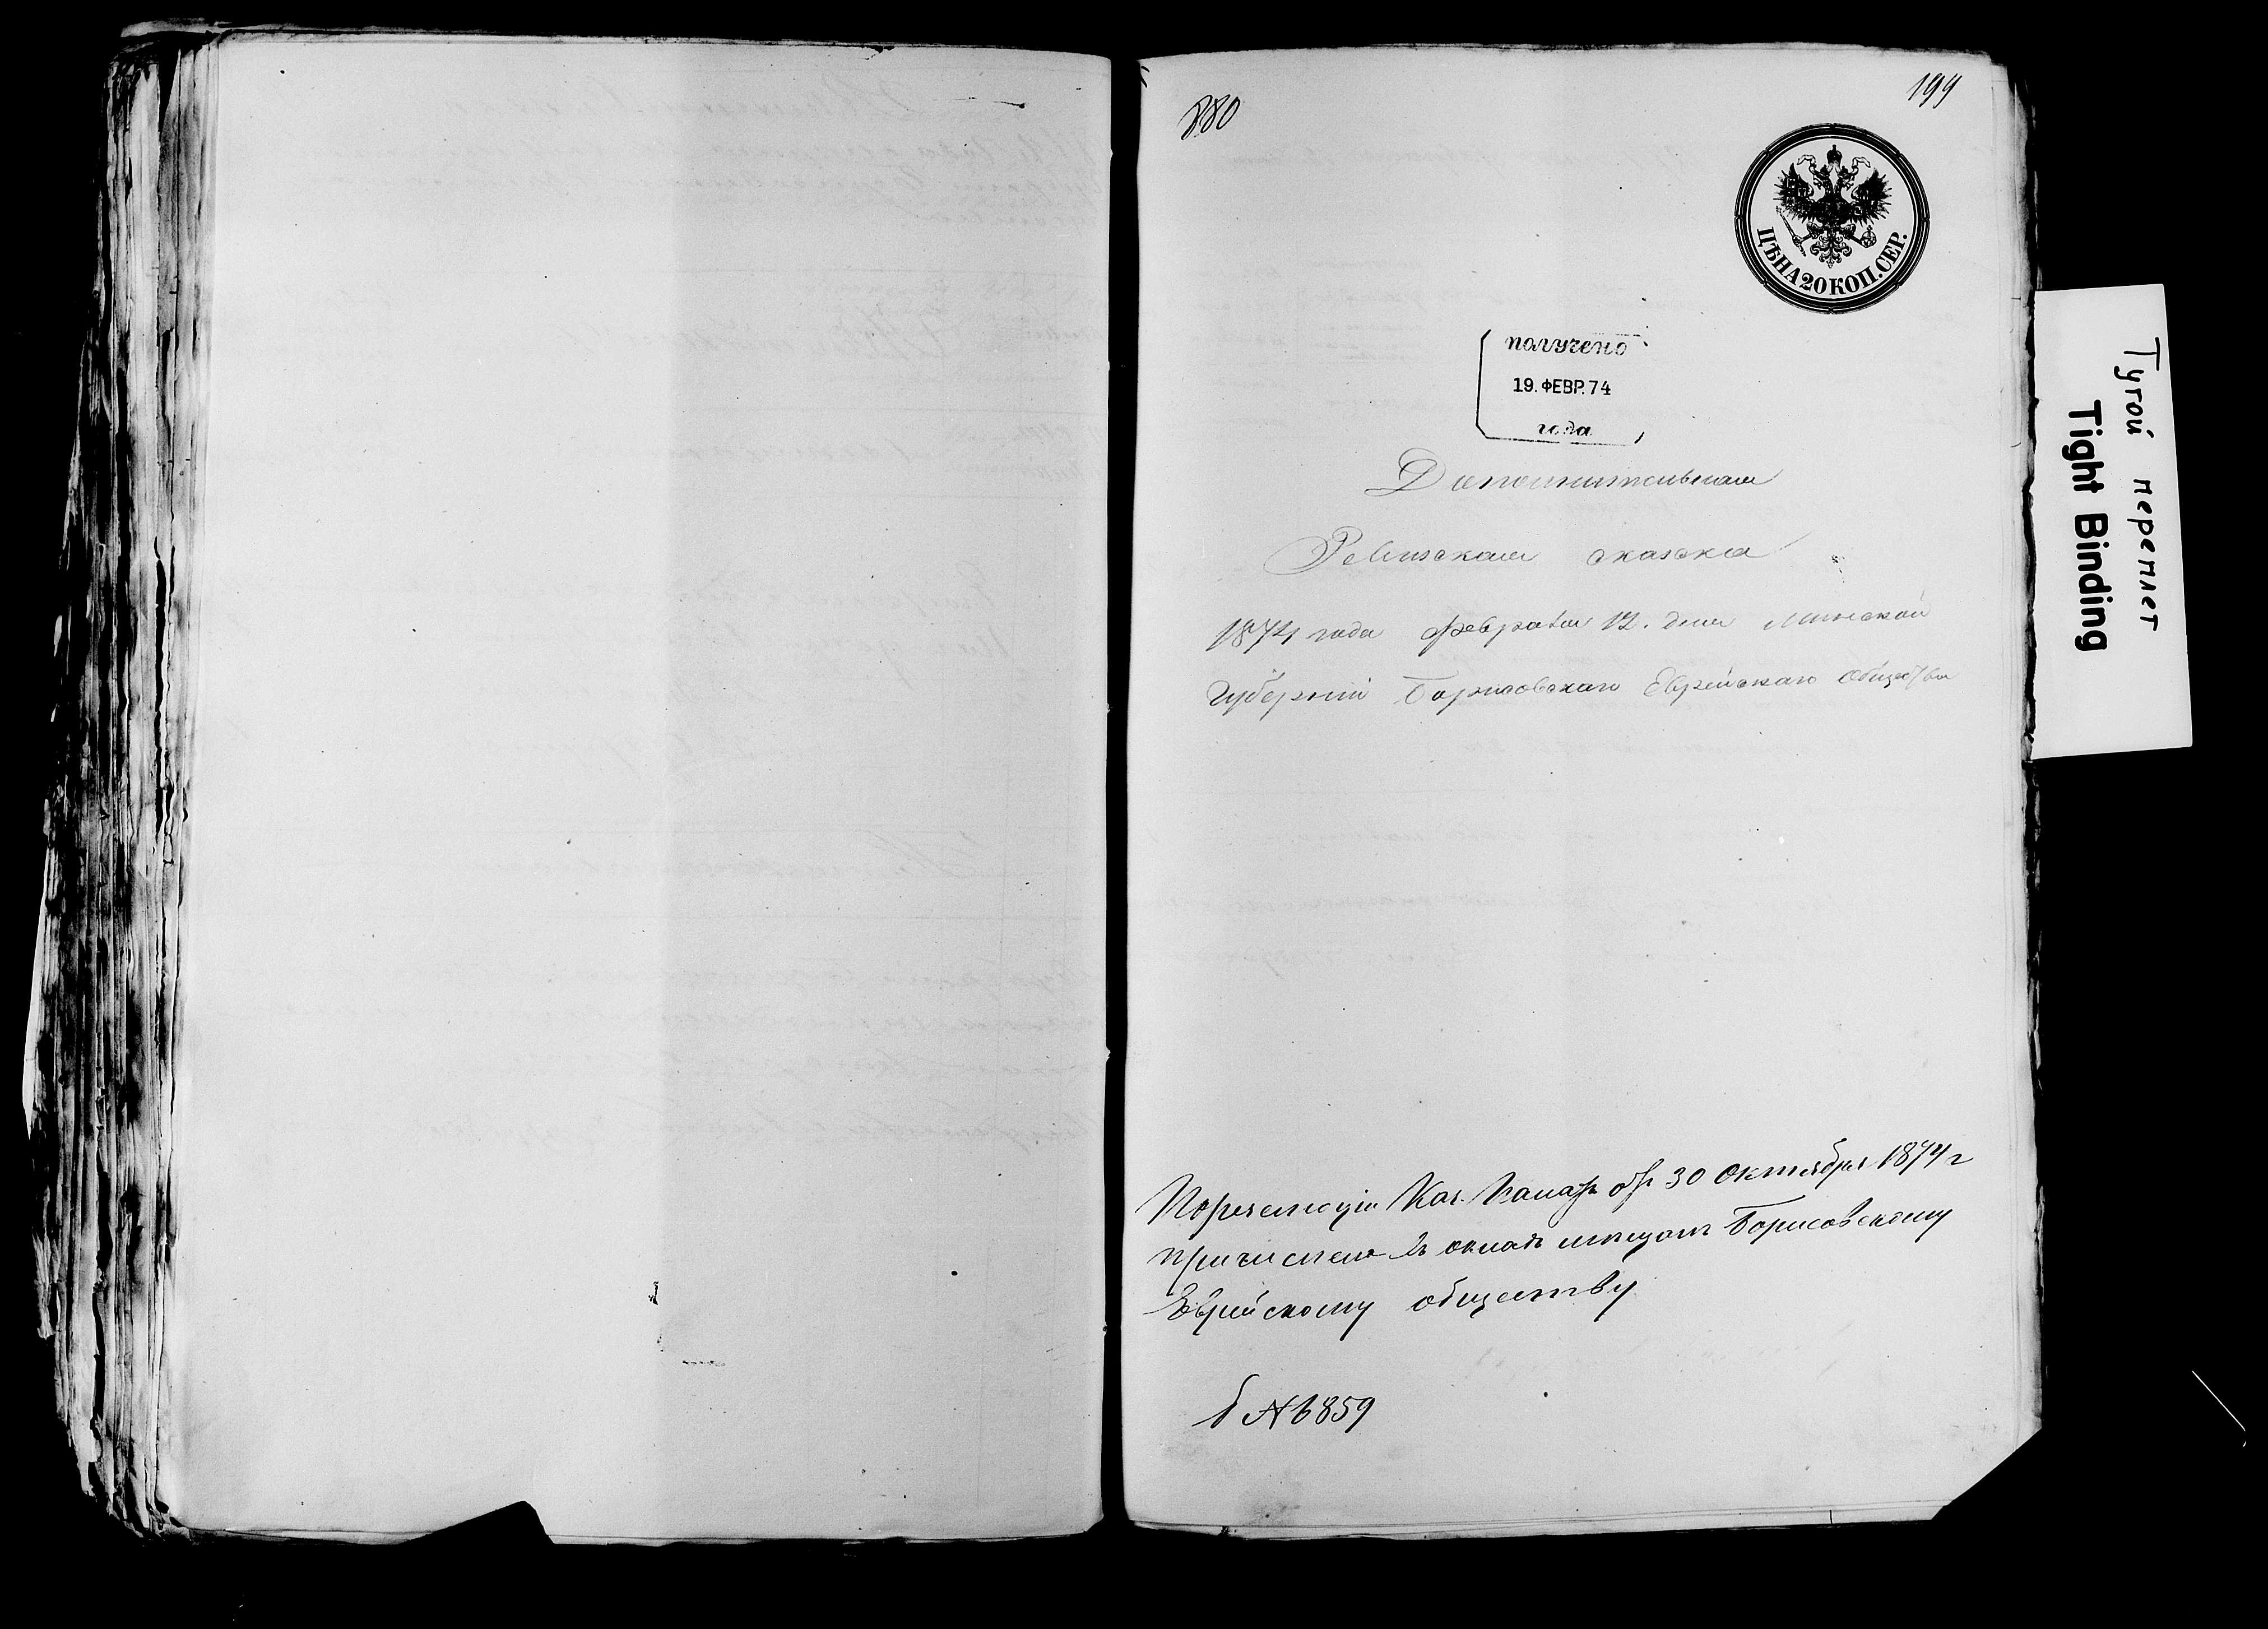 880
199
ЦѢНА 20 КОП. СЕР.
получено
19. ФЕВР. 74
года
Дополнительная
Ревизская сказка
1874 года Февраля 12. дня Минской
Губерніи Борисовскаго Еврейскаго Общества
Каз. Палаты отъ 30 Октября 1874 г
причислена въ окладъ мѣщанъ Борисовскому
Еврейскому обществу
№ 6859
Тугой переплет
Tight Binding